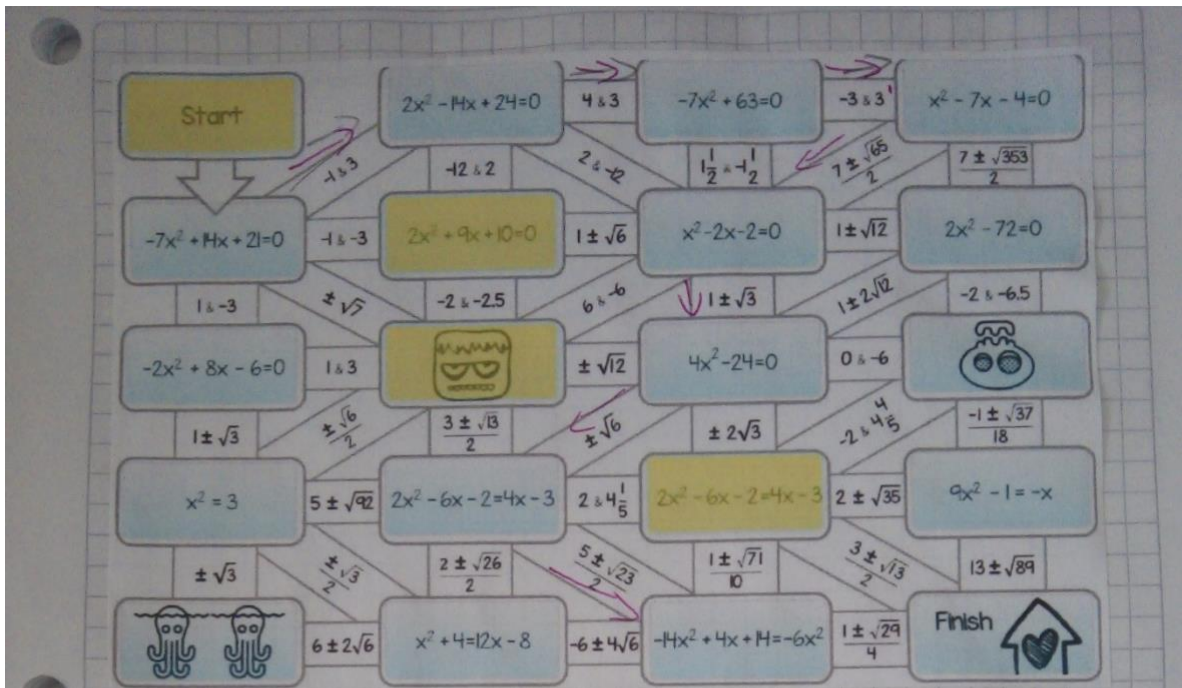 Start
2x² - 14x + 24=0
4 & 3
-7x² + 63=0
-3 & 3
x² - 7x - 4=0
-1 & 3
-12 & 2
2 & -12
1 1/2 & -1 1/2
7 ± √65 / 2
7 ± √353 / 2
-7x² + 14x + 21=0
-1 & -3
2x² + 9x + 10=0
1 ± √6
x² - 2x - 2=0
1 ± √12
2x² - 72=0
1 & -3
± √7
-2 & -2.5
6 & -6
1 ± √3
1 ± 2√12
-2 & -6.5
-2x² + 8x - 6=0
1 & 3
± √12
4x² - 24=0
0 & -6
1 ± √3
± √6 / 2
3 ± √13 / 2
± √6
± 2√3
-2 & 4 4/5
-1 ± √37 / 18
x² = 3
5 ± √92
2x² - 6x - 2=4x - 3
2 & 4 1/5
2x² - 6x - 2=4x - 3
2 ± √35
9x² - 1 = -x
± √3
± √3 / 2
2 ± √26 / 2
5 ± √23 / 2
1 ± √71 / 10
3 ± √13 / 2
13 ± √89
6 ± 2√6
x² + 4=12x - 8
-6 ± 4√6
-14x² + 4x + 14=-6x²
1 ± √29 / 4
Finish